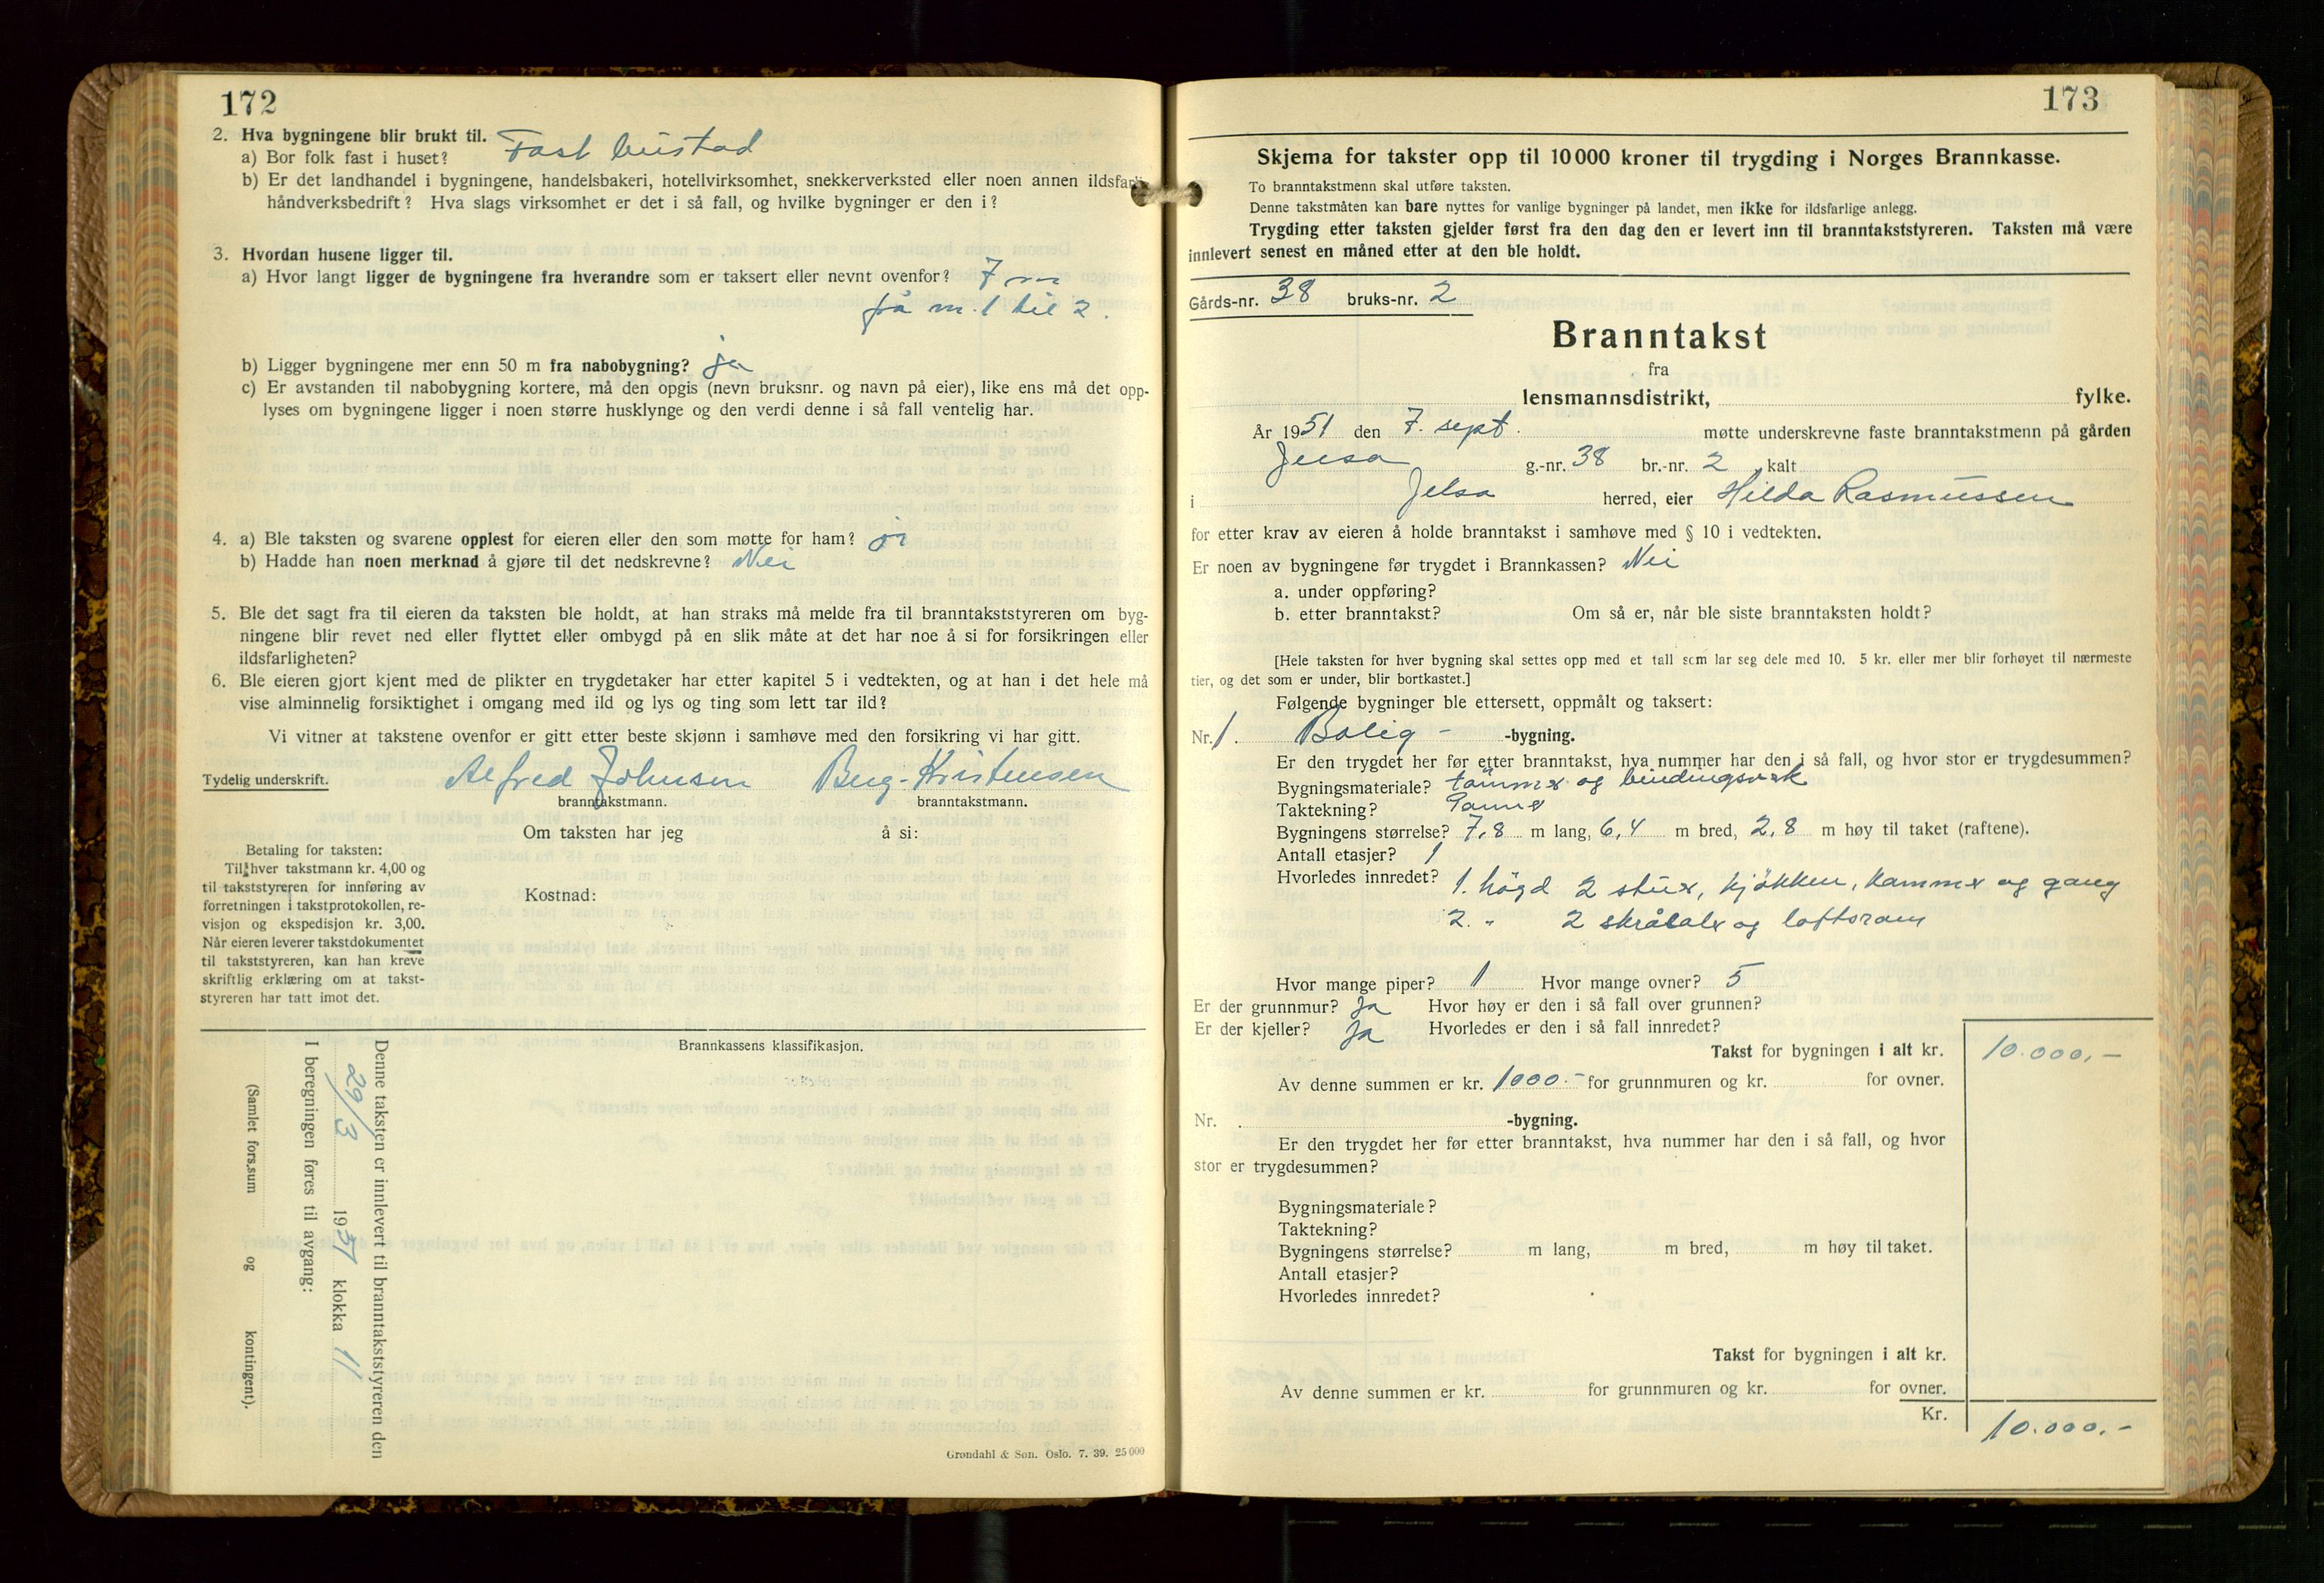 172
2. Hva bygningene blir brukt til.
a) Bor folk fast i huset? Fast bustad
b) Er det landhandel i bygningene, handelsbakeri, hotellvirksomhet, snekkerverksted eller noen annen ildsfarlig
håndverksbedrift? Hva slags virksomhet er det i så fall, og hvilke bygninger er den i?
3. Hvordan husene ligger til.
a) Hvor langt ligger de bygningene fra hverandre som er taksert eller nevnt ovenfor? 7 m
frå nr. 1 til 2.
b) Ligger bygningene mer enn 50 m fra nabobygning? ja
c) Er avstanden til nabobygning kortere, må den opgis (nevn bruksnr. og navn på eier), like ens må det opp-
lyses om bygningene ligger i noen større husklynge og den verdi denne i så fall ventelig har.
4. a) Ble taksten og svarene opplest for eieren eller den som møtte for ham? ja
b) Hadde han noen merknad å gjøre til det nedskrevne? Nei
5. Ble det sagt fra til eieren da taksten ble holdt, at han straks må melde fra til branntakststyreren om byg-
ningene blir revet ned eller flyttet eller ombygd på en slik måte at det har noe å si for forsikringen eller
ildsfarligheten?
6. Ble eieren gjort kjent med de plikter en trygdetaker har etter kapitel 5 i vedtekten, og at han i det hele må
vise alminnelig forsiktighet i omgang med ild og lys og ting som lett tar ild?
Vi vitner at takstene ovenfor er gitt etter beste skjønn i samhøve med den forsikring vi har gitt.
Tydelig underskrift. Alfred Johnsen Berg-Kristensen
branntakstmann. branntakstmann.
Om taksten har jeg å si:
Betaling for taksten:
Til hver takstmann kr. 4,00 og
til takststyreren for innføring av
forretningen i takstprotokollen, re-
visjon og ekspedisjon kr. 3,00.
Når eieren leverer takstdokumentet
til takststyreren, kan han kreve
skriftlig erklæring om at takst-
styreren har tatt imot det.
Kostnad:
Brannkassens klassifikasjon.
Denne taksten er innlevert til branntakststyreren den
29/3 1951 klokka 11
I beregningen føres til avgang:
(Samlet fors.sum og kontingent).
Grøndahl & Søn. Oslo. 7. 39. 25 000
173
Skjema for takster opp til 10 000 kroner til trygding i Norges Brannkasse.
To branntakstmenn skal utføre taksten.
Denne takstmåten kan bare nyttes for vanlige bygninger på landet, men ikke for ildsfarlige anlegg.
Trygding etter taksten gjelder først fra den dag den er levert inn til branntakststyreren. Taksten må være
innlevert senest en måned etter at den ble holdt.
Gårds-nr. 38 bruks-nr. 2
Branntakst
fra
lensmannsdistrikt, fylke.
År 1951 den 7. sept. møtte underskrevne faste branntakstmenn på gården
Jelsa g.-nr. 38 br.-nr. 2 kalt
i Jelsa herred, eier Hilda Rasmussen
for etter krav av eieren å holde branntakst i samhøve med § 10 i vedtekten.
Er noen av bygningene før trygdet i Brannkassen? Nei
a. under oppføring?
b. etter branntakst? Om så er, når ble siste branntaksten holdt?
[Hele taksten for hver bygning skal settes opp med et tall som lar seg dele med 10. 5 kr. eller mer blir forhøyet til nærmeste
tier, og det som er under, blir bortkastet.]
Følgende bygninger ble ettersett, oppmålt og taksert:
Nr. 1. Bolig - -bygning.
Er den trygdet her før etter branntakst, hva nummer har den i så fall, og hvor stor er trygdesummen?
Bygningsmateriale? tømmer og bindingsverk
Taktekning? Panner
Bygningens størrelse? 7,8 m lang, 6,4 m bred, 2,8 m høy til taket (raftene).
Antall etasjer? 1
Hvorledes innredet? 1. högd 2 stuer, kjökken, kammer og gang
2. " 2 skråtaler og loftsrom
Hvor mange piper? 1 Hvor mange ovner? 5
Er der grunnmur? Ja Hvor høy er den i så fall over grunnen?
Er der kjeller? Ja Hvorledes er den i så fall innredet?
Takst for bygningen i alt kr. 10.000,-
Av denne summen er kr. 1000.- for grunnmuren og kr. for ovner.
Nr. . -bygning.
Er den trygdet her før etter branntakst, hva nummer har den i så fall, og hvor
stor er trygdesummen?
Bygningsmateriale?
Taktekning?
Bygningens størrelse? m lang, m bred, m høy til taket.
Antall etasjer?
Hvorledes innredet?
Takst for bygningen i alt kr.
Av denne summen er kr. for grunnmuren og kr. for ovner.
Kr. 10.000.-